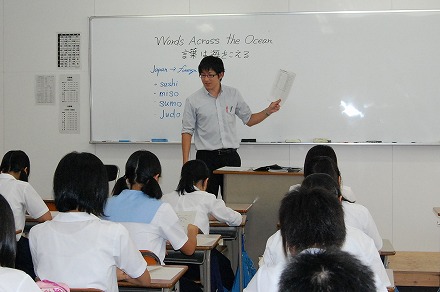 Words Across the Ocean
言葉は海をこえる
Japan → foreign
- sushi
- miso
sumo
Judo